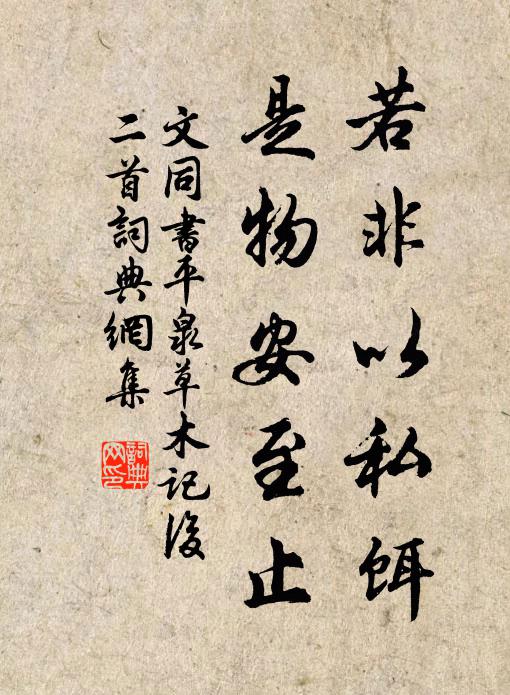 若非以私餌
是物安至止
文同書平泉草木記後
二首詞典網集
詞典網印